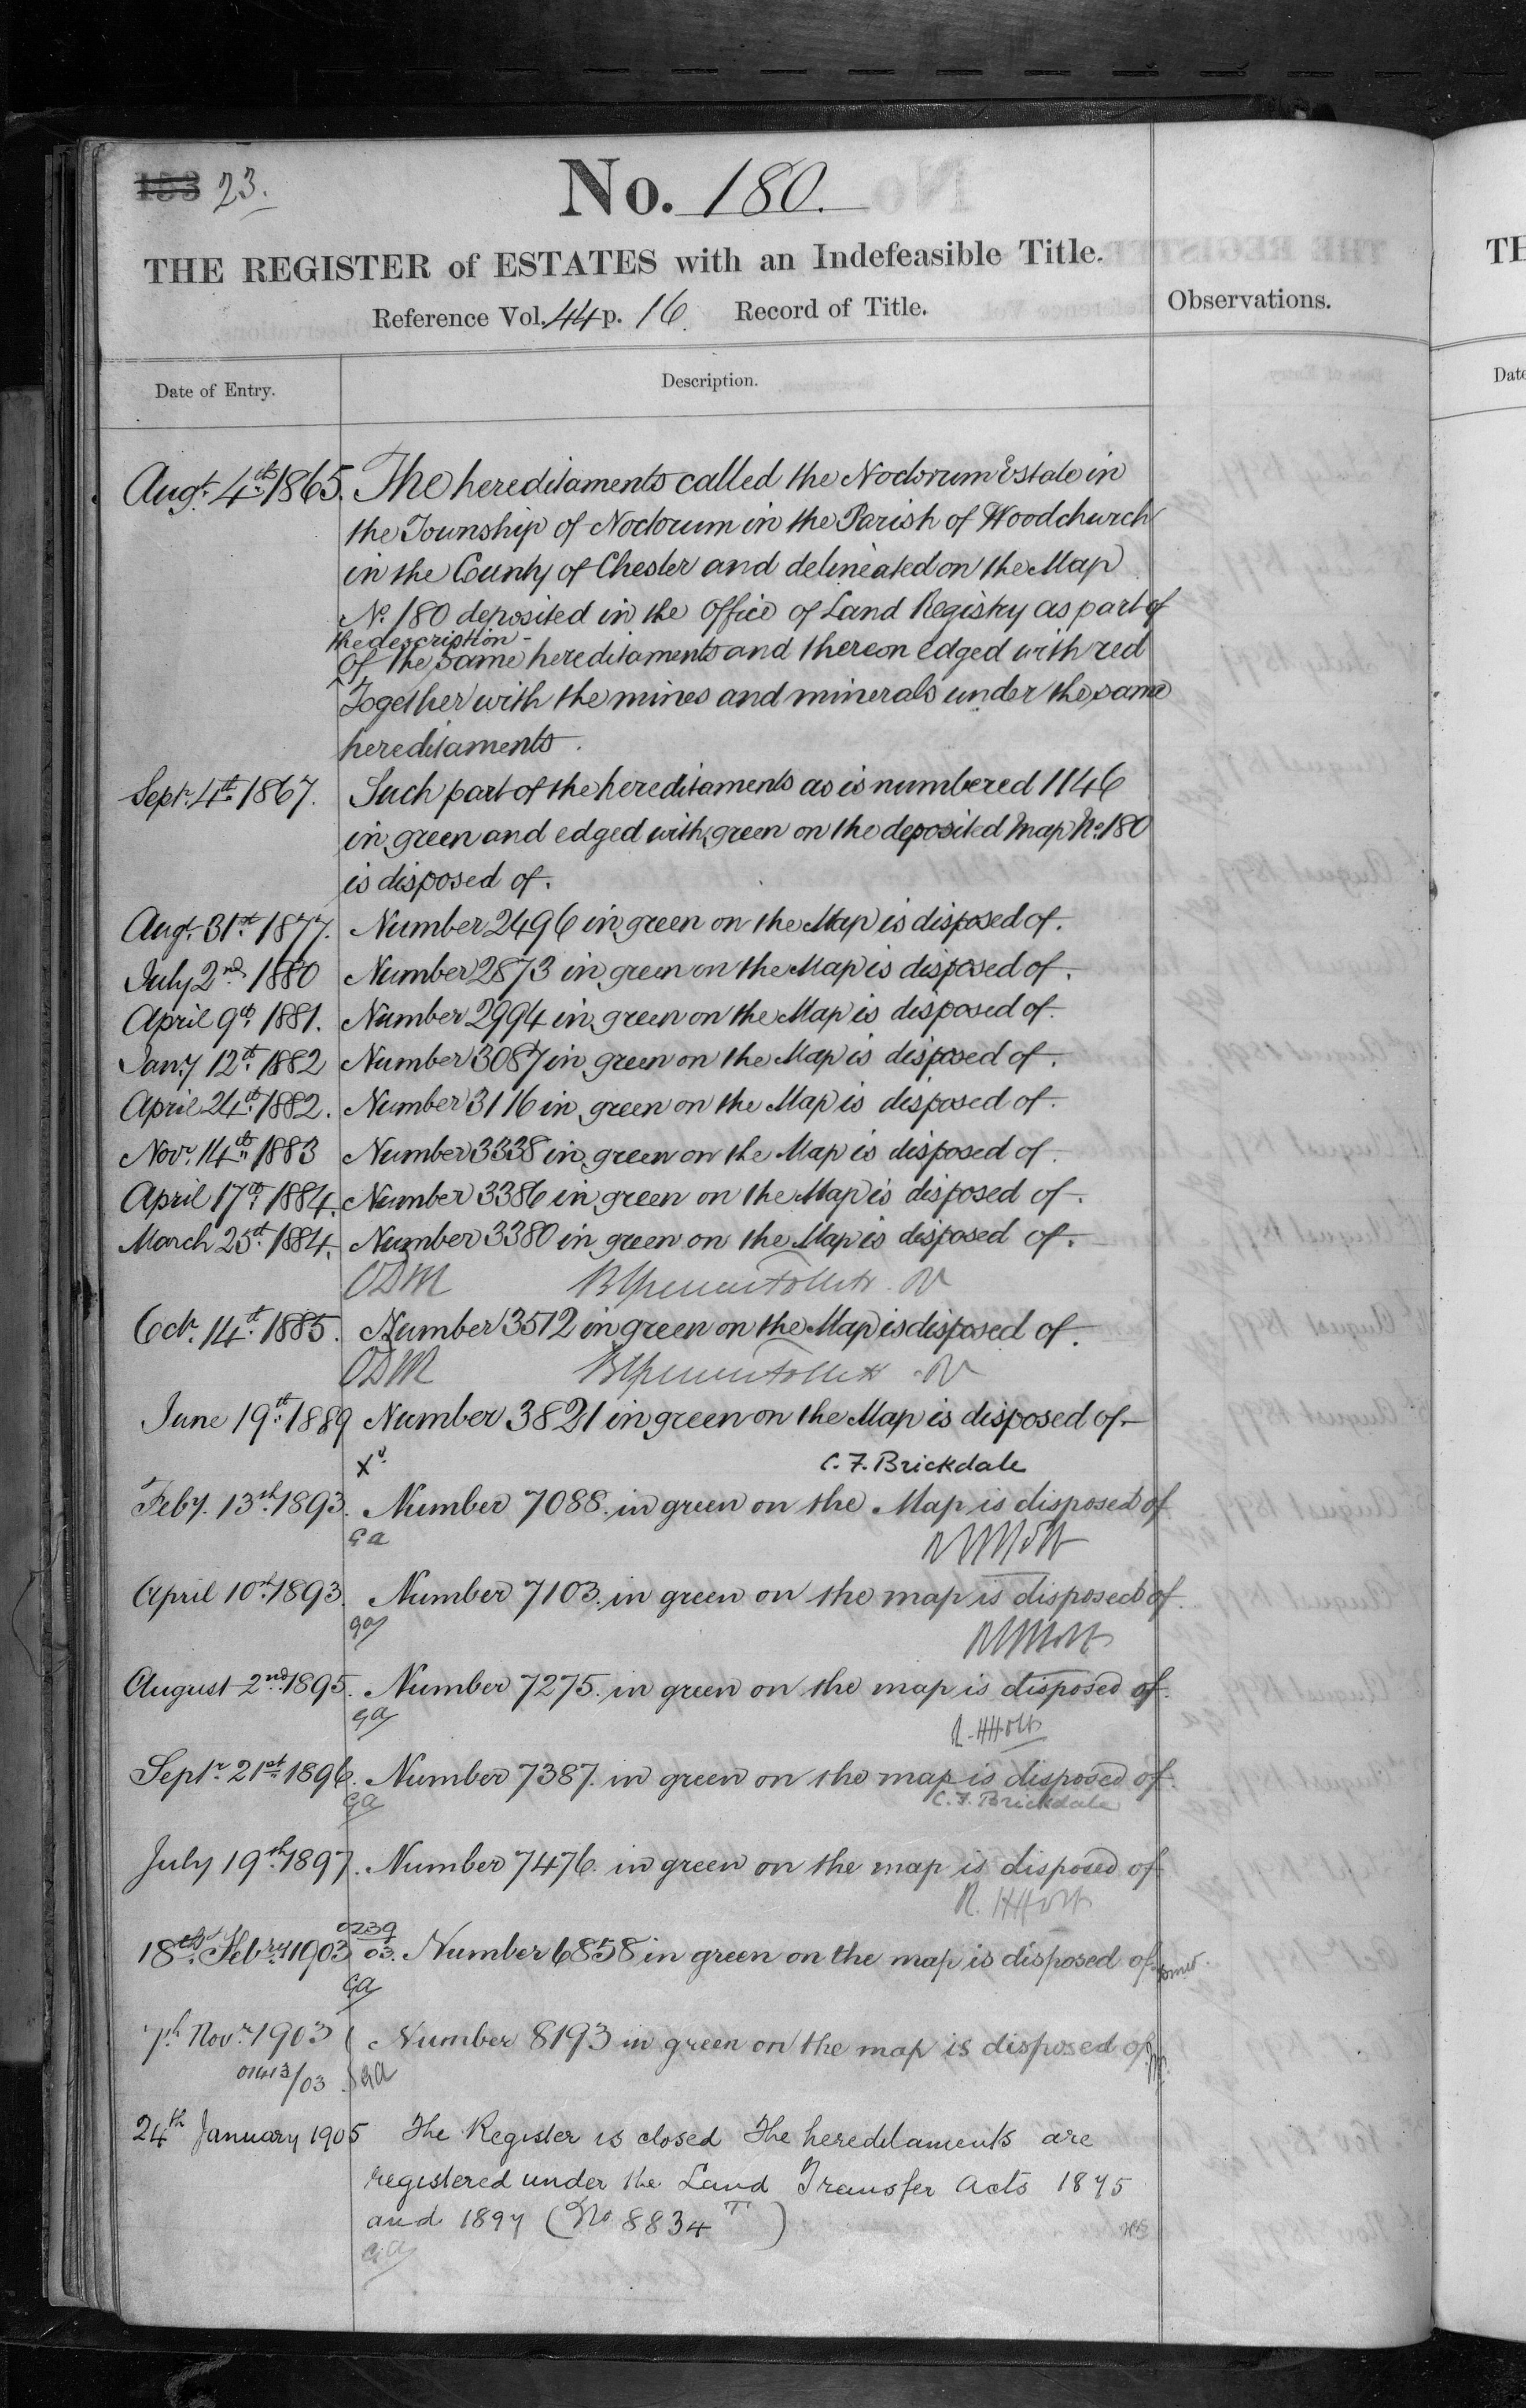 153 23.
No. 180.
THE REGISTER of ESTATES with an Indefeasible Title.
Reference Vol. 44 p. 16. Record of Title.
Observations.
Date of Entry.
Description.
Augt. 4th. 1865. The hereditaments called the Noctorum Estate in
the Township of Noctorum in the Parish of Woodchurch
in the County of Chester and delineated on the Map
No. 180 deposited in the Office of Land Registry as part of
the description
of the same hereditaments and thereon edged with red
Together with the mines and minerals under the same
hereditaments.
Septr. 4th. 1867. Such part of the hereditaments as is numbered 1146
in green and edged with green on the deposited Map No. 180
is disposed of.
Augt. 31st. 1877. Number 2496 in green on the Map is disposed of.
July 2nd. 1880 Number 2873 in green on the Map is disposed of.
April 9th. 1881. Number 2994 in green on the Map is disposed of.
Jany 12th. 1882 Number 3087 in green on the Map is disposed of.
April 24th. 1882. Number 3116 in green on the Map is disposed of.
Novr. 14th. 1883 Number 3338 in green on the Map is disposed of.
April 17th. 1884. Number 3386 in green on the Map is disposed of.
March 25th. 1884. Number 3380 in green on the Map is disposed of.
ODM
Octr. 14th. 1885. Number 3512 in green on the Map is disposed of.
ODM
June 19th. 1889 Number 3821 in green on the Map is disposed of.
C. F. Brickdale
Feby. 13th. 1893. Number 7088. in green on the Map is disposed of
Ga
R H Holt
April 10th. 1893. Number 7103. in green on the map is disposed of.
Ga
R H Holt
August 2nd. 1895. Number 7275. in green on the map is disposed of.
Ga
R. H Holt
Septr. 21st. 1896. Number 7387. in green on the map is disposed of.
Ga
C. F. Brickdale
July 19th. 1897. Number 7476. in green on the map is disposed of
R. H Holt
0239
18th. Febry 1903 03. Number 6858 in green on the map is disposed of
Ga
7th Novr. 1903 Number 8193 in green on the map is disposed of
/03 Ga
24th January 1905 The Register is closed The hereditaments are
registered under the Land Transfer Acts 1875
and 1897 (No 8834 T)
Ga
TH
Date